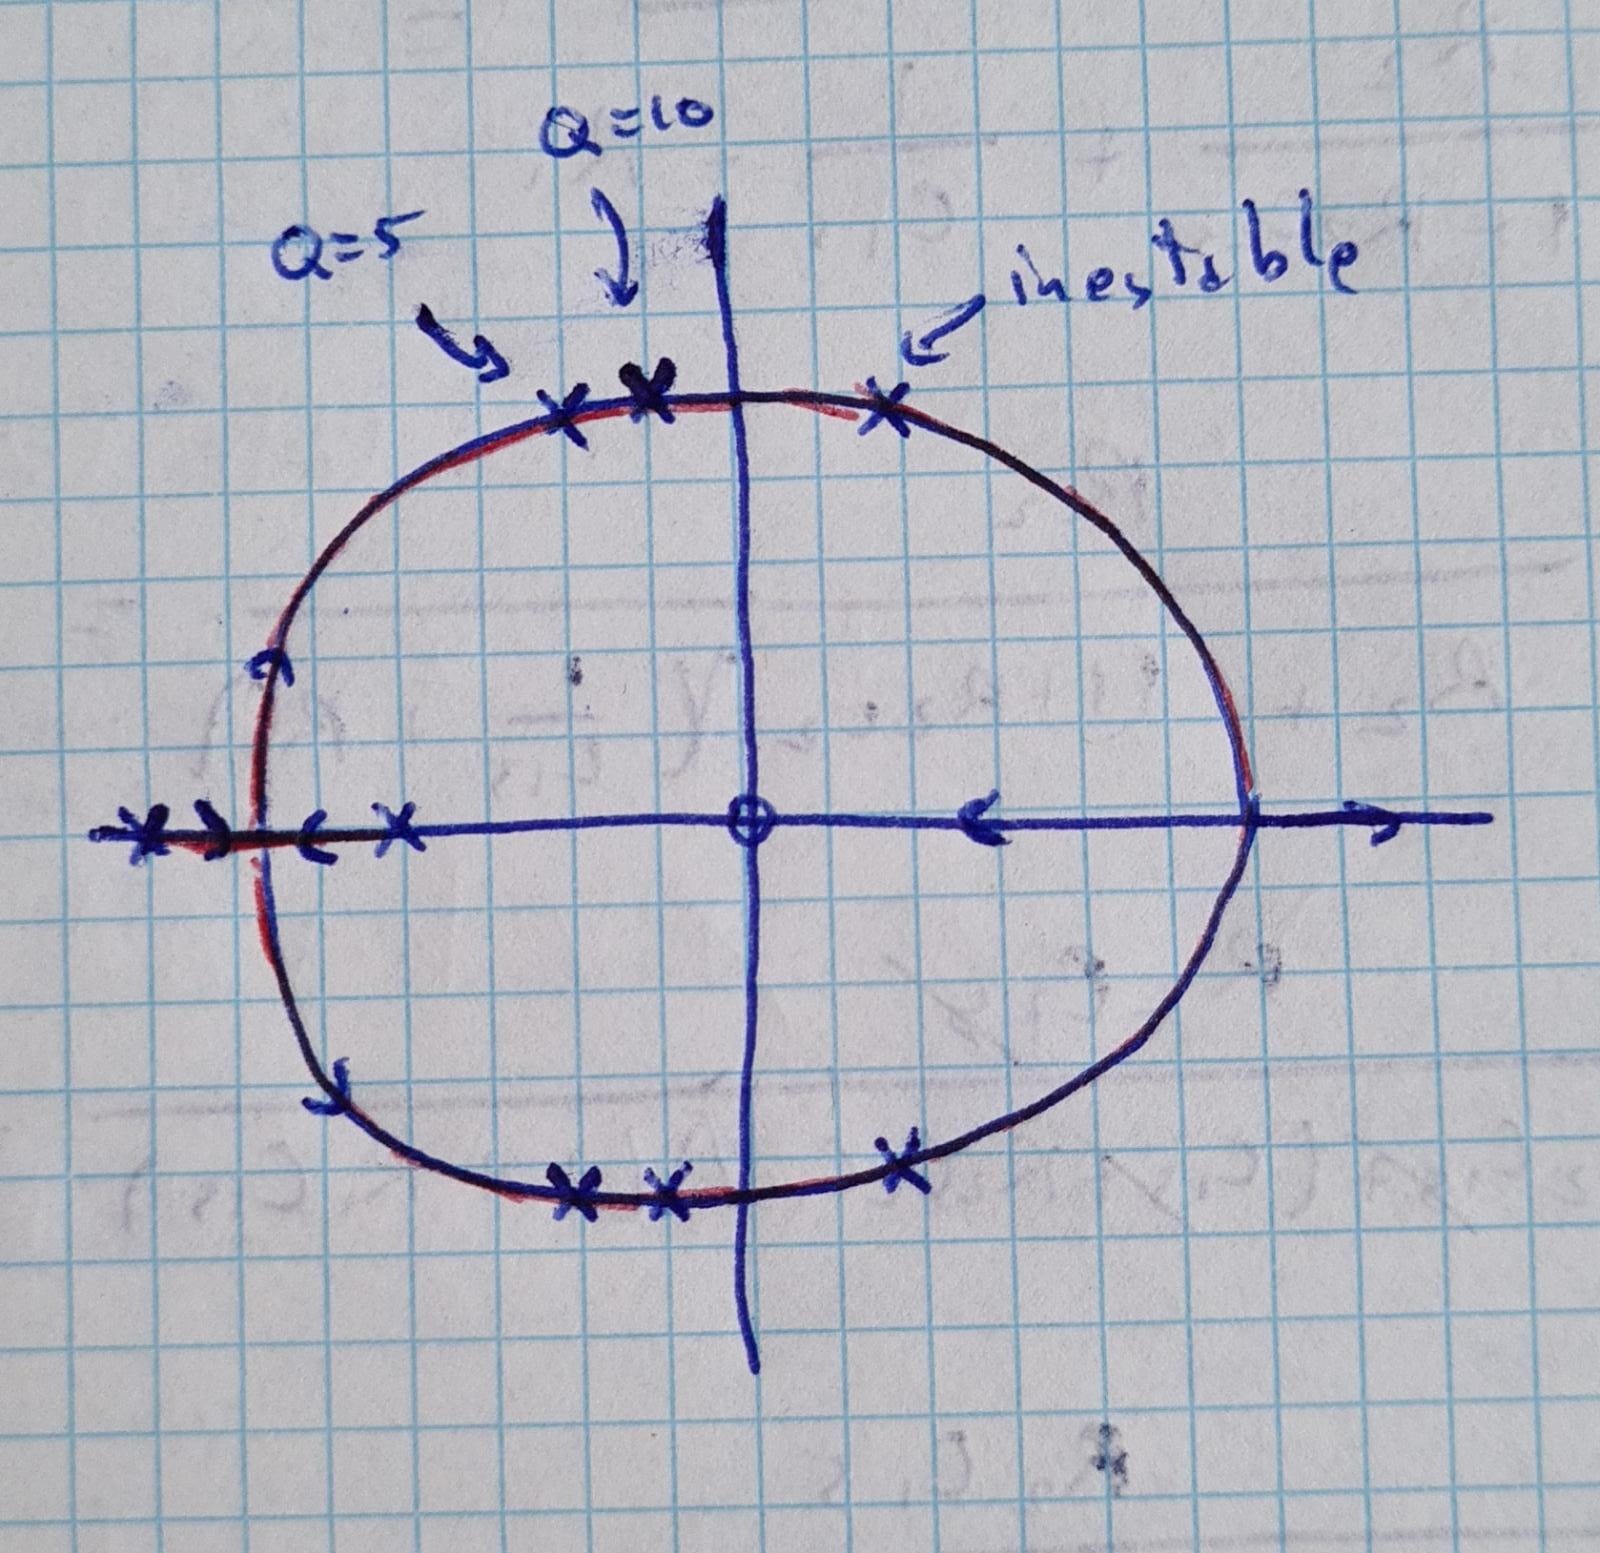 Q=10
Q=5
inestable